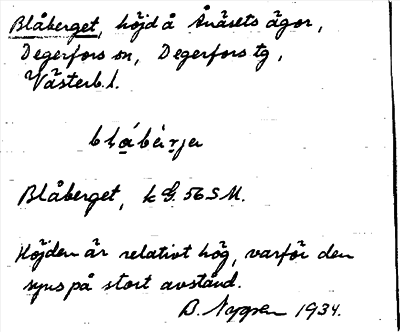 Blåberget, höjd å Ånäsets ägor,
Degerfors sn, Degerfors tg,
Västerb. l.
blábèrjer
Blåberget, k G. 56 S M.
Höjden är relativt hög, varför den
syns på stort avstånd.
B. Nygren 1934.